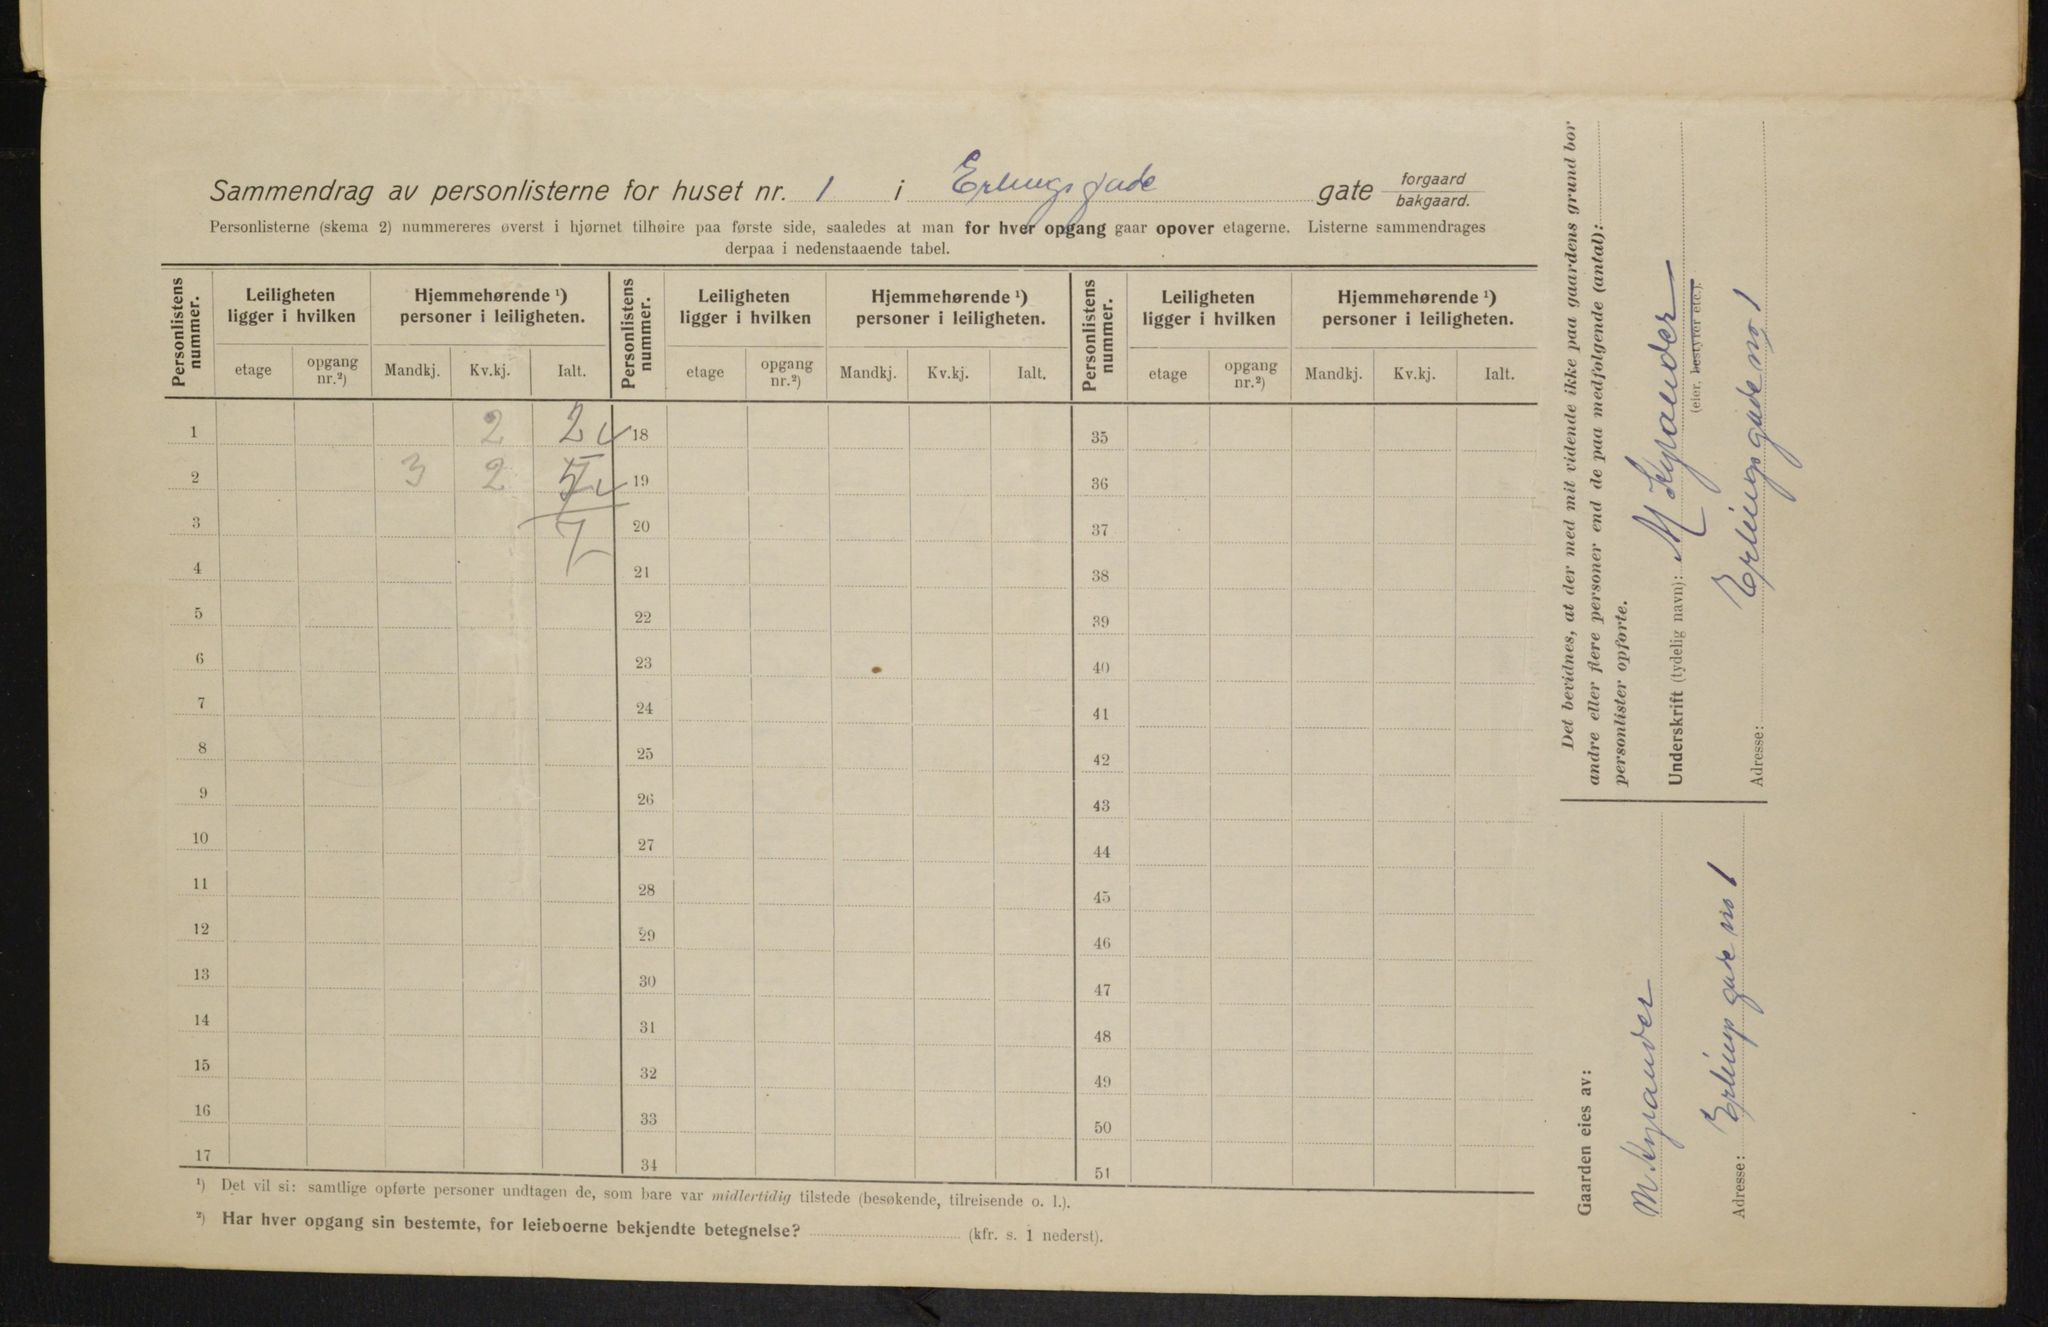 Sammendrag av personlisterne for huset nr. 1 i Erlingsgade gate forgaard bakgaard.
Personlisterne (skema 2) nummereres øverst i hjørnet tilhøire paa første side, saaledes at man for hver opgang gaar opover etagerne. Listerne sammendrages
derpaa i nedenstaaende tabel.
Personlistens nummer. Leiligheten ligger i hvilken Hjemmehørende ¹) personer i leiligheten. Personlistens nummer. Leiligheten ligger i hvilken Hjemmehørende ¹) personer i leiligheten. Personlistens nummer. Leiligheten ligger i hvilken Hjemmehørende ¹) personer i leiligheten.
etage opgang nr.²) Mandkj. Kv.kj. Ialt. etage opgang nr.²) Mandkj. Kv.kj. Ialt. etage opgang nr.²) Mandkj. Kv.kj. Ialt.
1 2 2 18 35
2 3 2 5 19 36
3 7 20 37
4 21 38
5 22 39
6 23 40
7 24 41
8 25 42
9 26 43
10 27 44
11 28 45
12 29 46
13 30 47
14 31 48
15 32 49
16 33 50
17 34 51
¹) Det vil si: samtlige opførte personer undtagen de, som bare var midlertidig tilstede (besøkende, tilreisende o. l.).
²) Har hver opgang sin bestemte, for leieboerne bekjendte betegnelse? (kfr. s. 1 nederst).
Det bevidnes, at der med mit vidende ikke paa gaardens grund bor
andre eller flere personer end de paa medfølgende (antal):
personlister opførte.
Underskrift (tydelig navn):
(eier, bestyrer etc.).
Adresse: Erlingsgade no 1
Gaarden eies av:
Adresse: Erlingsgade no 1